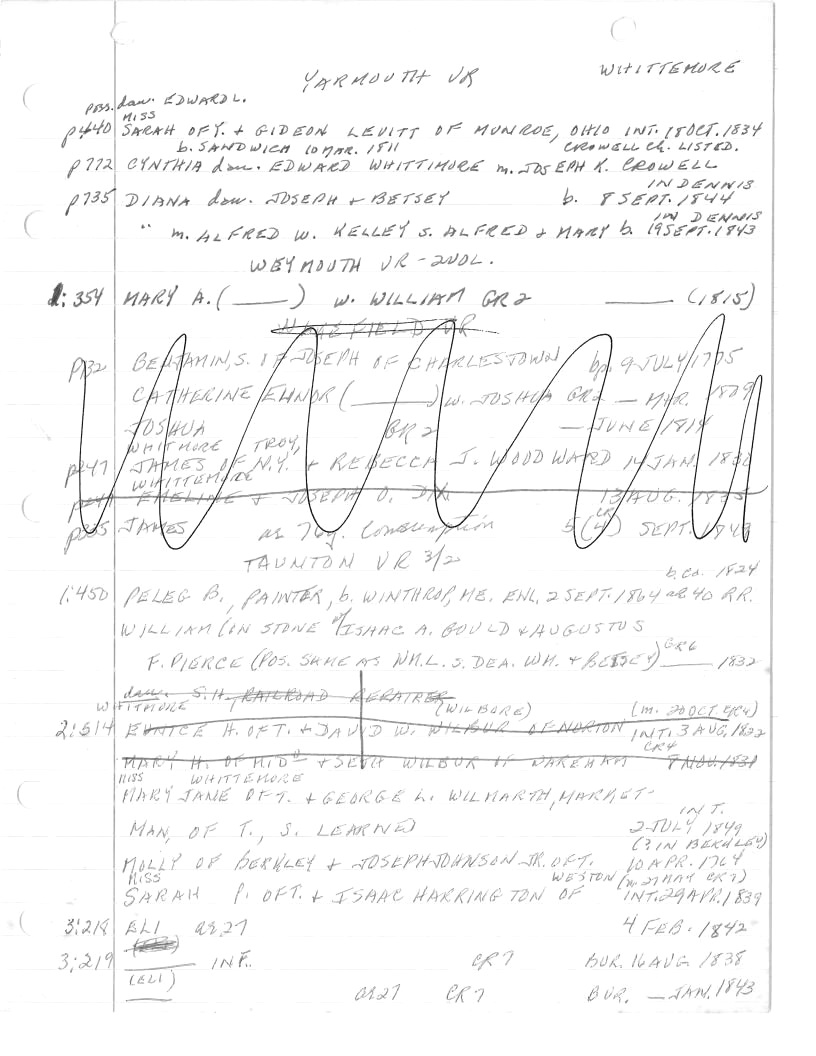 YARMOUTH VR WHITTEMORE
POSS. daw. EDWARD L.
MISS
p440 SARAH OF Y. + GIDEON LEVITT OF MUNROE, OHIO INT. 18 OCT. 1834
b. SANDWICH 10 MAR. 1811 CROWELL Ch. LISTED.
p772 CYNTHIA daw. EDWARD WHITTIMORE m. JOSEPH K. CROWELL
IN DENNIS
p735 DIANA daw. JOSEPH + BETSEY b. 8 SEPT. 1844
IN DENNIS
" m. ALFRED W. KELLEY S. ALFRED + MARY b. 19 SEPT. 1843
WEYMOUTH VR - 2 VOL.
1: 354 MARY A. (____) w. WILLIAM GR2 ____ (1815)
WAKEFIELD VR
p132 BENJAMIN, S. OF JOSEPH OF CHARLESTOWN bp. 9 JULY 1775
CATHERINE ELINOR (____) w. JOSHUA GR2 — MAR. 1809
JOSHUA GR2 — JUNE 1814
WHITMORE TROY,
p247 JAMES OF N.Y. + REBECCA J. WOODWARD 14 JAN. 1836
WHITTEMORE
p247 EMELINE + JOSEPH O. DIX 13 AUG. 1835
CR
p335 JAMES ae 76y. Consumption 5 (4) SEPT. 1849
TAUNTON VR 3/2
b. ca. 1824
1:450 PELEG B., PAINTER, b. WINTHROP, ME. ENL. 2 SEPT. 1864 ae 40 RR.
WILLIAM (ON STONE of ISAAC A. GOULD + AUGUSTUS
F. PIERCE (POS. SAME AS WM. L. S. DEA. WM. + BETSEY) GR6 ____ 1832
daw. S.H., RAILROAD REPAIRER
WHITMORE (WILBORE) (m. 20 OCT. CR4)
2:514 EUNICE H. OF T. + DAVID W. WILBUR OF NORTON INT. 3 AUG. 1822
CR4
MARY H. OF MID. + SETH WILBUR OF WAREHAM 8 NOV. 1831
MISS WHITTEMORE
MARY JANE OF T. + GEORGE L. WILMARTH, MARKET-
INT.
MAN, OF T., S. LEARNED 2 JULY 1849
(? IN BERKLEY)
MOLLY OF BERKLEY + JOSEPH JOHNSON JR. OF T. 10 APR. 1764
MISS WESTON (m. 27 MAY CR7)
SARAH P. OF T. + ISAAC HARRINGTON OF INT. 29 APR. 1839
3:218 ELI ae 27 4 FEB. 1842
3:219 ____ INF. CR7 BUR. 16 AUG. 1838
(ELI)
____ ae 27 CR7 BUR. — JAN. 1843